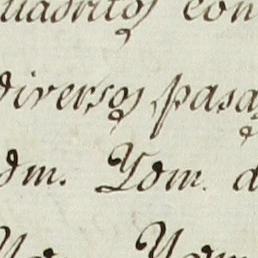 quadritos con
diversos pasa
dm. Yom. d